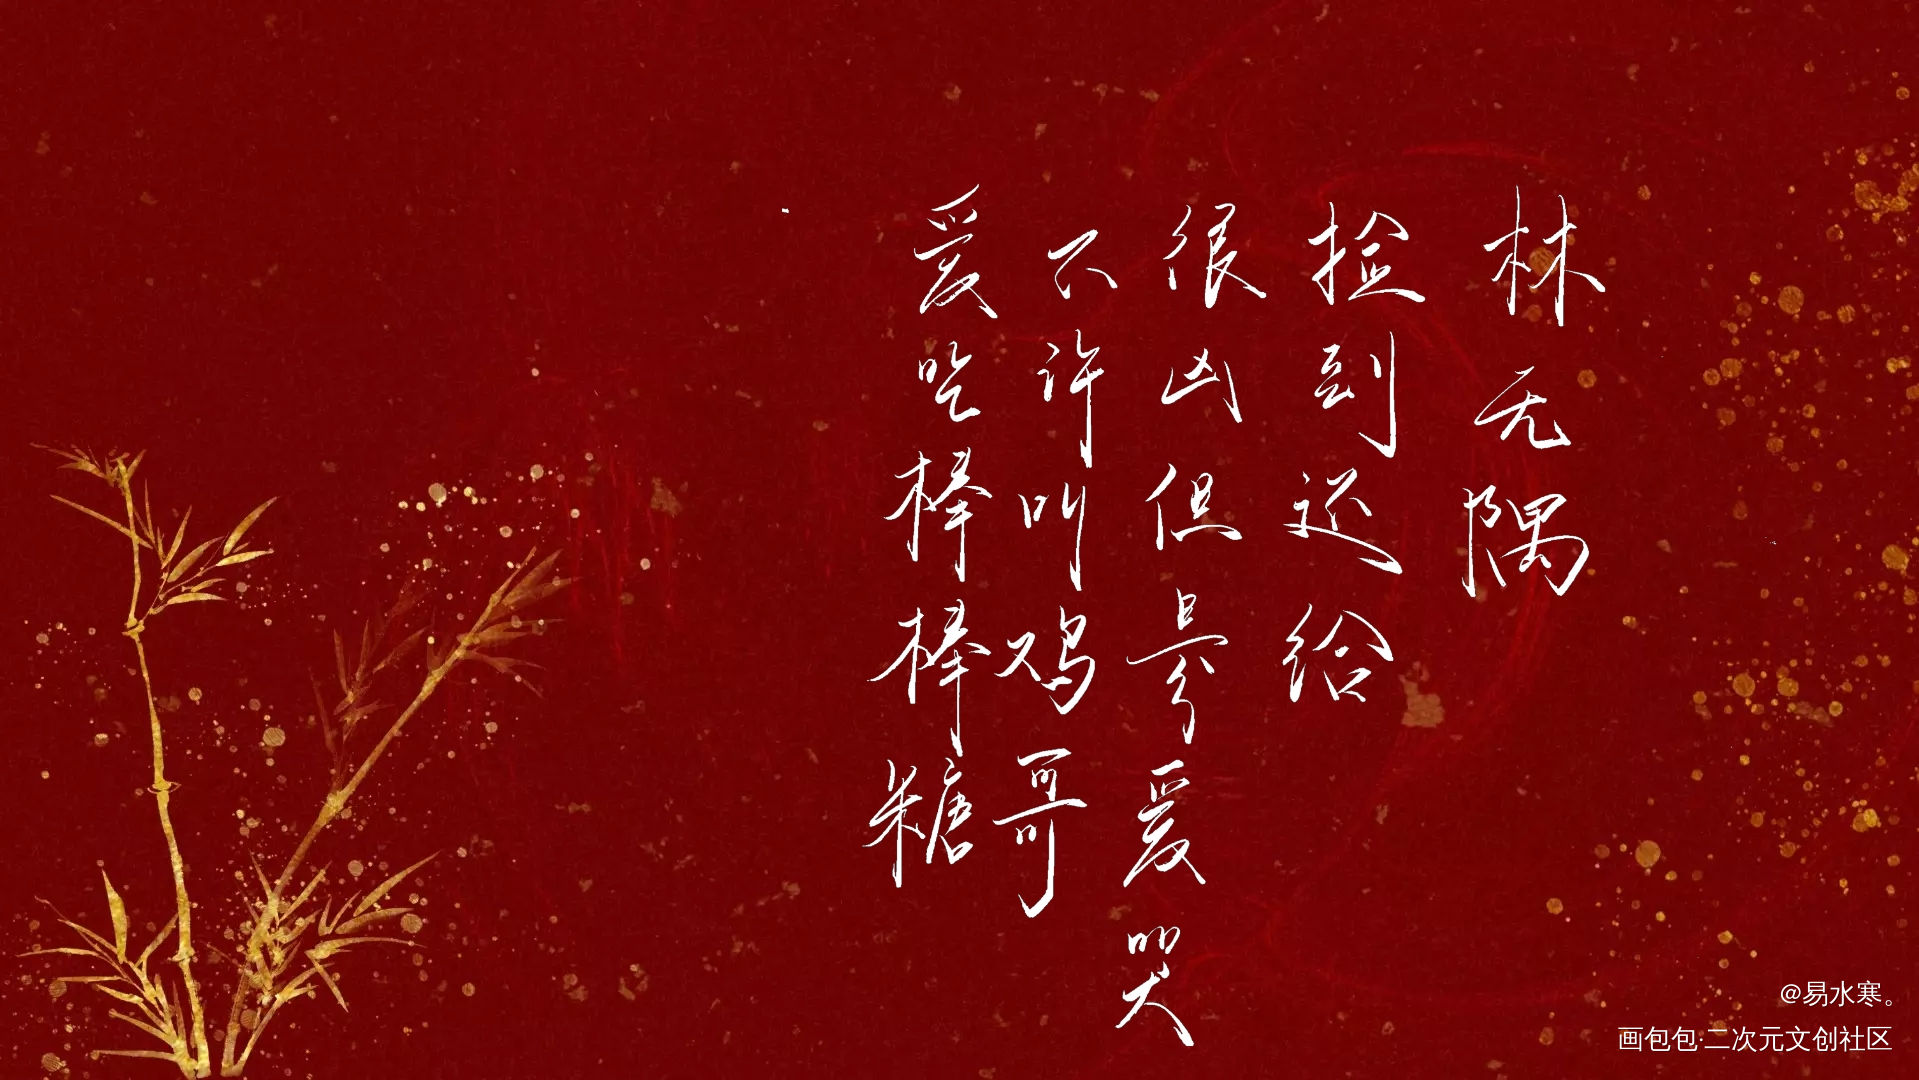 林无隅
捡到还给
很凶但是爱哭
不许叫鸡哥
爱吃棒棒糖
@易水寒。
画包包·二次元文创社区